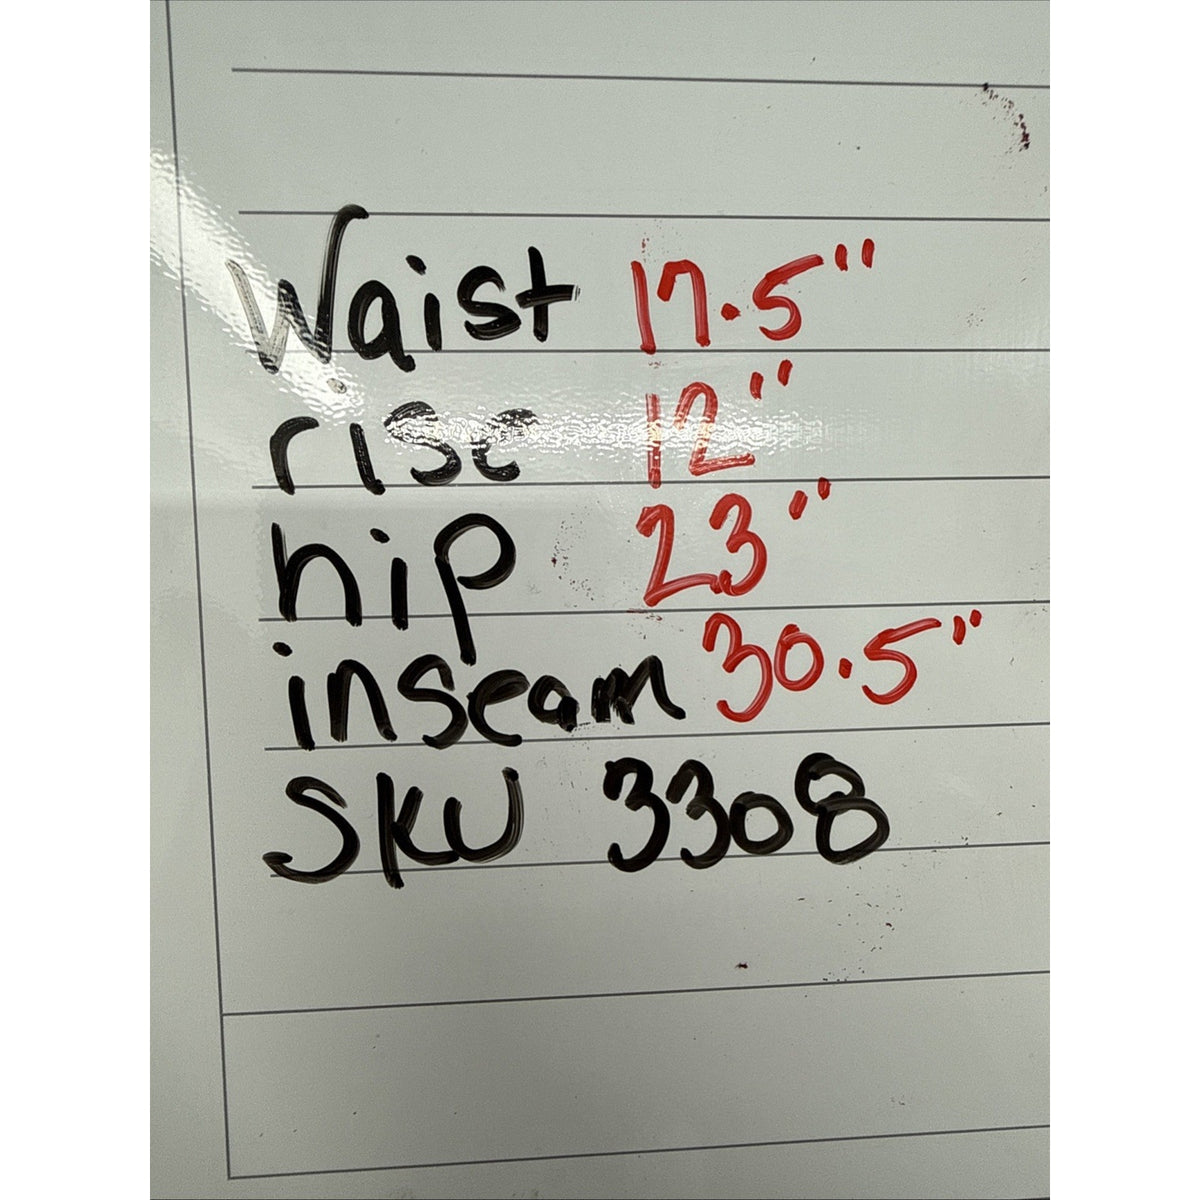 Waist 17.5"
rise 12"
hip 23"
inseam 30.5"
SKU 3308